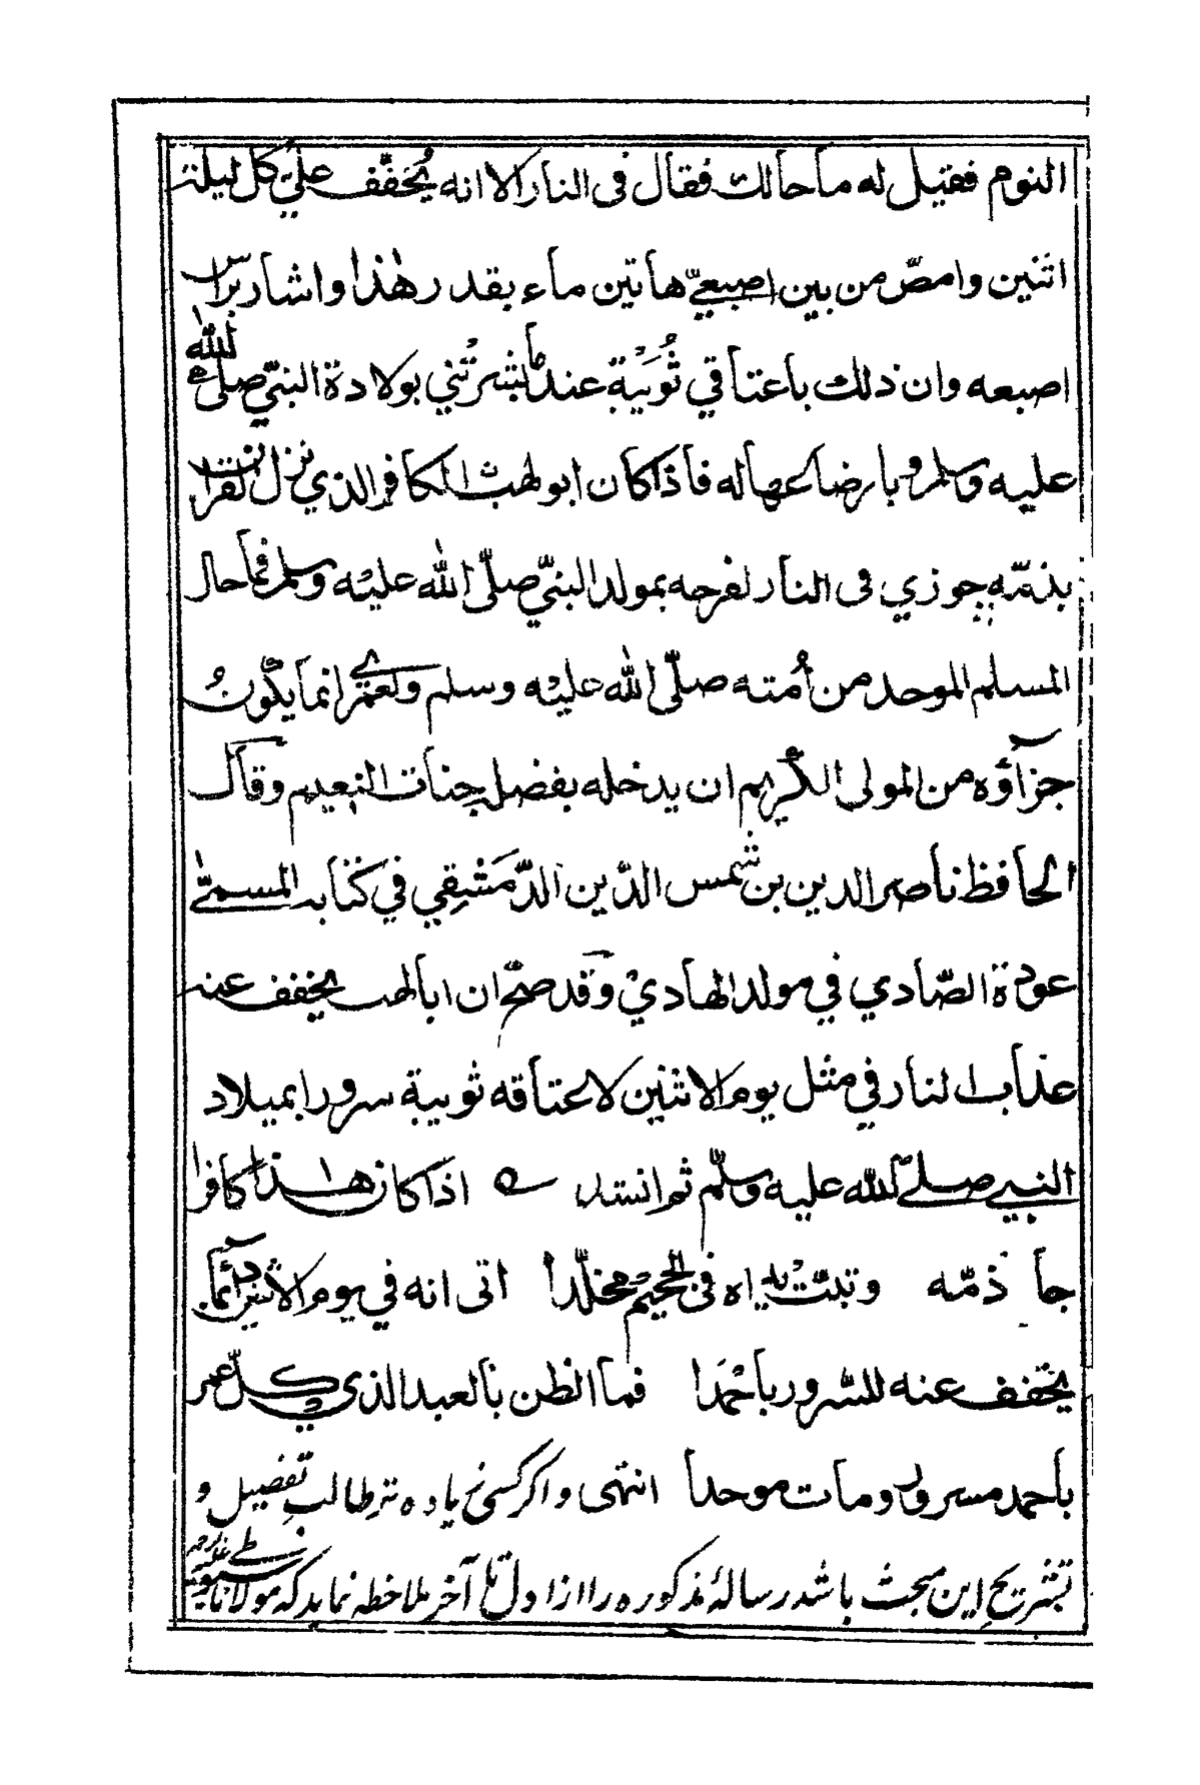 النوم فقيل له ما حالك فقال فى النار الا انه يُخَفَّف عليّ كل ليلة
اثنين وامصّ من بين اصبعيّ هاتين ماء بقدر هٰذا واشار براس
اصبعه وان ذلك باعتاقي ثُوَيبَةِ عندما بشرتْني بولادة النبيّ صلى الله
عليه وسلم وبارضاعها له فاذا كان ابو لهب الكافر الذي نزل القران
بذمّه جوزي فى النار لفرحه بمولد النبيّ صلّى الله عليْه وسلم فما حال
المسلم الموحد من أُمته صلّى الله عليْه وسلم ولعمرى انما يكونُ
جزآؤه من المولى الكريم ان يدخله بفضله جنات النعيم وقال
الحافظ ناصر الدين بن شمس الدّين الدّمَشْقِي في كتابه المسمّى
عودة الصّادي في مولد الهاديْ وقد صحّ ان ابا لهب يخفف عنه
عذاب النار في مثل يوم الاثنين لاعتاقه ثويبة سرورا بميلاد
النبي صلى الله عليه وسلّم ثم انشد ؎ اذا كان هٰذا كافرا
جا ذمّه وتبّتْ يداه فى الجحيْم مخلّدا اتى انه في يوم الاثنين دآئما
يخفف عنه للسّرور باحْمَدا فما الظن بالعبد الذي كلّ عمره
باحمد مسرور ومات موحدا انتهى واگر كسى زياده تر طالب تفصيل و
تشريح اين مبحث باشد رسالۀ مذكوره را از اول تا آخر ملاحظه نمايد كه مولانا سيوطى رحمة عليه